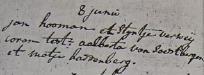 8 junii
jan hooman et styntje verweij
coram test: aalberta van Soestbergen
et metje hardenberg.